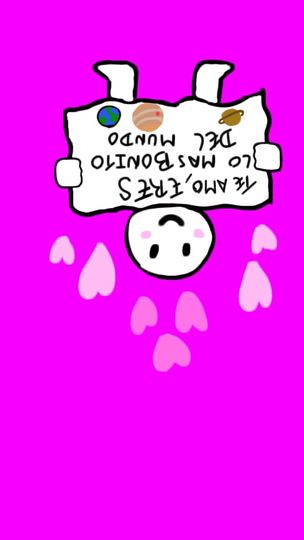 TE AMO, ERES
LO MAS BONITO
DEL MUNDO